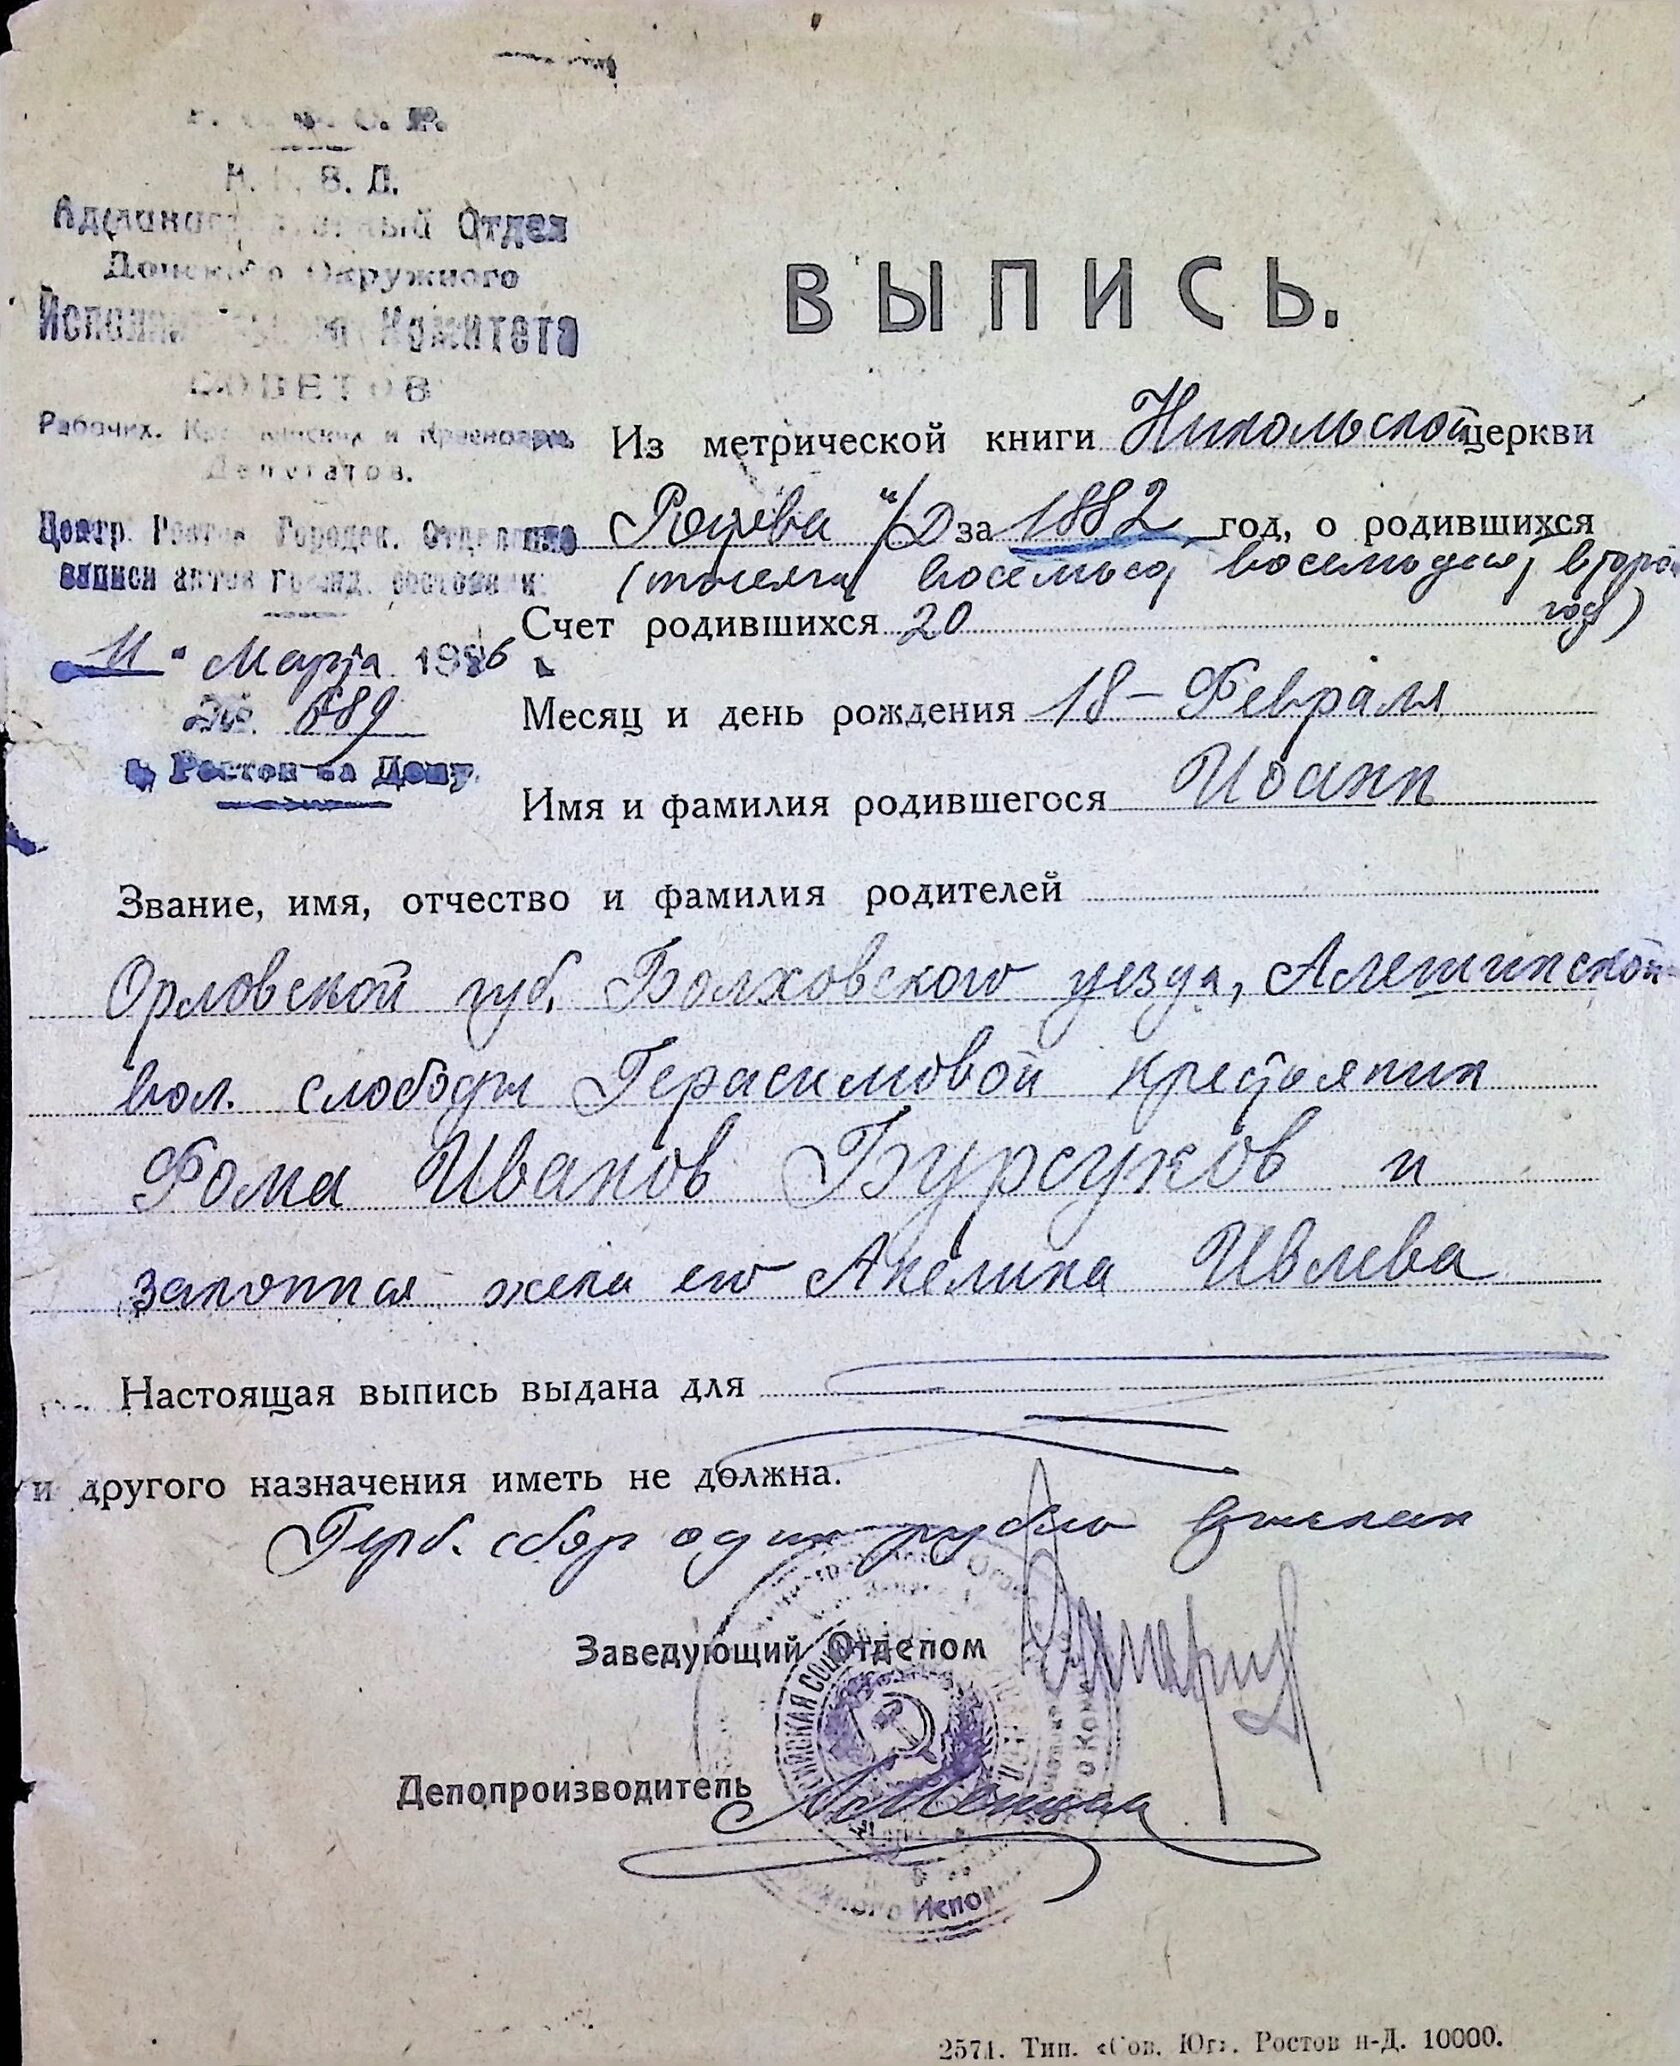 Р. С. Ф. С. Р.
Н. К. В. Д.
Административный Отдел
Донского Окружного
Исполнительного Комитета
СОВЕТОВ
Рабочих, Крестьянских и Красноарм.
Депутатов.
Центр. Ростов. Городск. Отделение
записи актов гражд. состояния
11 " Марта 1926
№ 689
г. Ростов на Дону
ВЫПИСЬ.
Из метрической книги Никольской церкви
Ростова н/Д за 1882 год, о родившихся
(тысяча восемьсот восемьдесят второй
год)
Счет родившихся 20
Месяц и день рождения 18 – Февраля
Имя и фамилия родившегося Иоанн
Звание, имя, отчество и фамилия родителей
Орловской губ. Болховского уезда, Алешинской
вол. слободы Герасимовой крестьянин
Фома Иванов Бурсуков и
законная жена его Акелина Ивлева
Настоящая выпись выдана для
и другого назначения иметь не должна.
Герб. сбор один рубль взыскан
Заведующий Отделом
Делопроизводитель
2571. Тип. «Сов. Юг». Ростов н-Д. 10000.